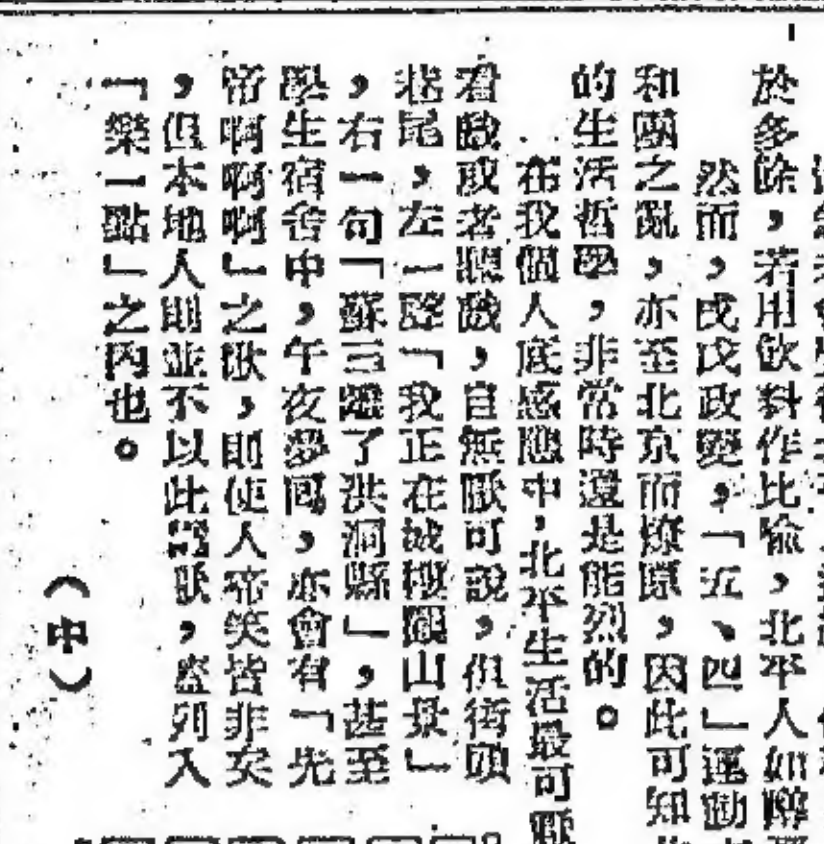 於多餘，若用飲料作比喻，北平人如醉
然而，戊戌政變，「五、四」運動
和團之亂，亦至北京而燎原，因此可知
的生活哲學，非常時還是能烈的。
在我個人底感應中，北平生活最可厭
看戲或者聽戲，自無厭可說，但街頭
巷尾，左一聲「我正在城樓觀山景」
，右一句「蘇三離了洪洞縣」，甚至
學生宿舍中，午夜夢迴，亦會有「先
帝啊啊啊」之歎，則使人啼笑皆非矣
，但本地人則並不以此為厭，蓋列入
「樂一點」之內也。
（中）